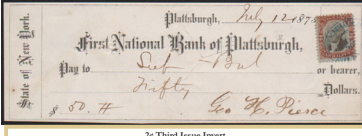 State of New York.
Plattsburgh, July 12 187
First National Bank of Plattsburgh,
Pay to Self - Bal or bearer,
Fifty Dollars.
$ 50.
Geo H. Pierce
2c Third Issue Invert